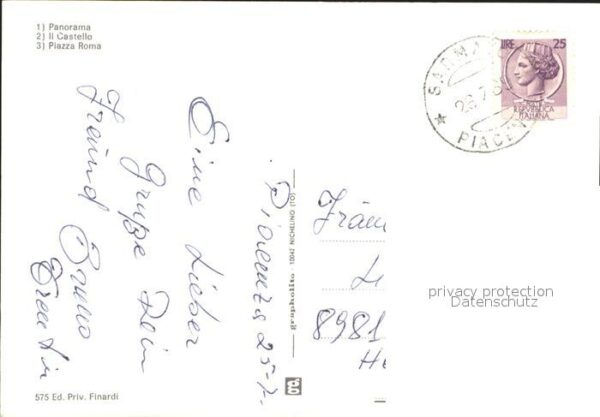 1) Panorama
2) Il Castello
3) Piazza Roma
Eine Lieber
Gruße Dein
Freund Bruno
Piacenza 25-7-
grapholito 10042 NICHELINO (TO)
g
LIRE 25
REPVBBLICA
ITALIANA
SARMA
26.7.6
PIACEN
Fräu
L
8981
He
privacy protection
Datenschutz
575 Ed. Priv. Finardi